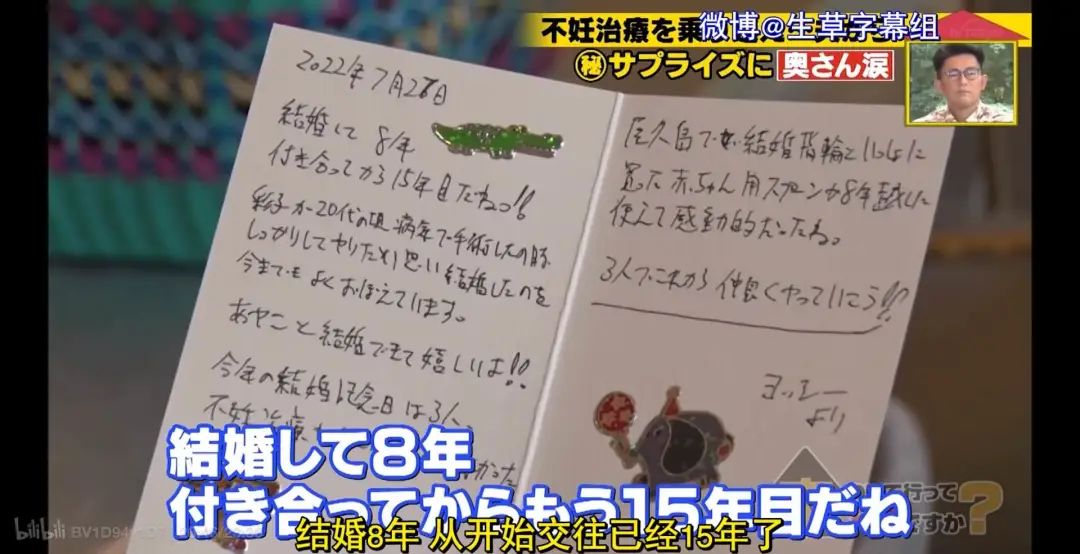 不妊治療を乗
微博@生草字幕组
㊙サプライズに 奥さん涙
2022年7月
結婚して 8年
付き合ってから15年目だねっ!!
彩子が20代の頃 病気で手術したの
しっかりしてやりたい 思い結婚したのを
今までもよくおぼえています。
あヤこと結婚できて嬉しいよ!!
今年の結婚記念日は3人
不妊治療
かった
屋久島で 結婚指輪といっしょに
買った赤ちゃん用スプーンが8年越しに
使えて感動的だったね。
3人でこれから仲良くやっていこう!!
ヨッシー
より
結婚して8年
付き合ってからもう15年目だね
行って
ですか?
bilibili
结婚8年 从开始交往已经15年了